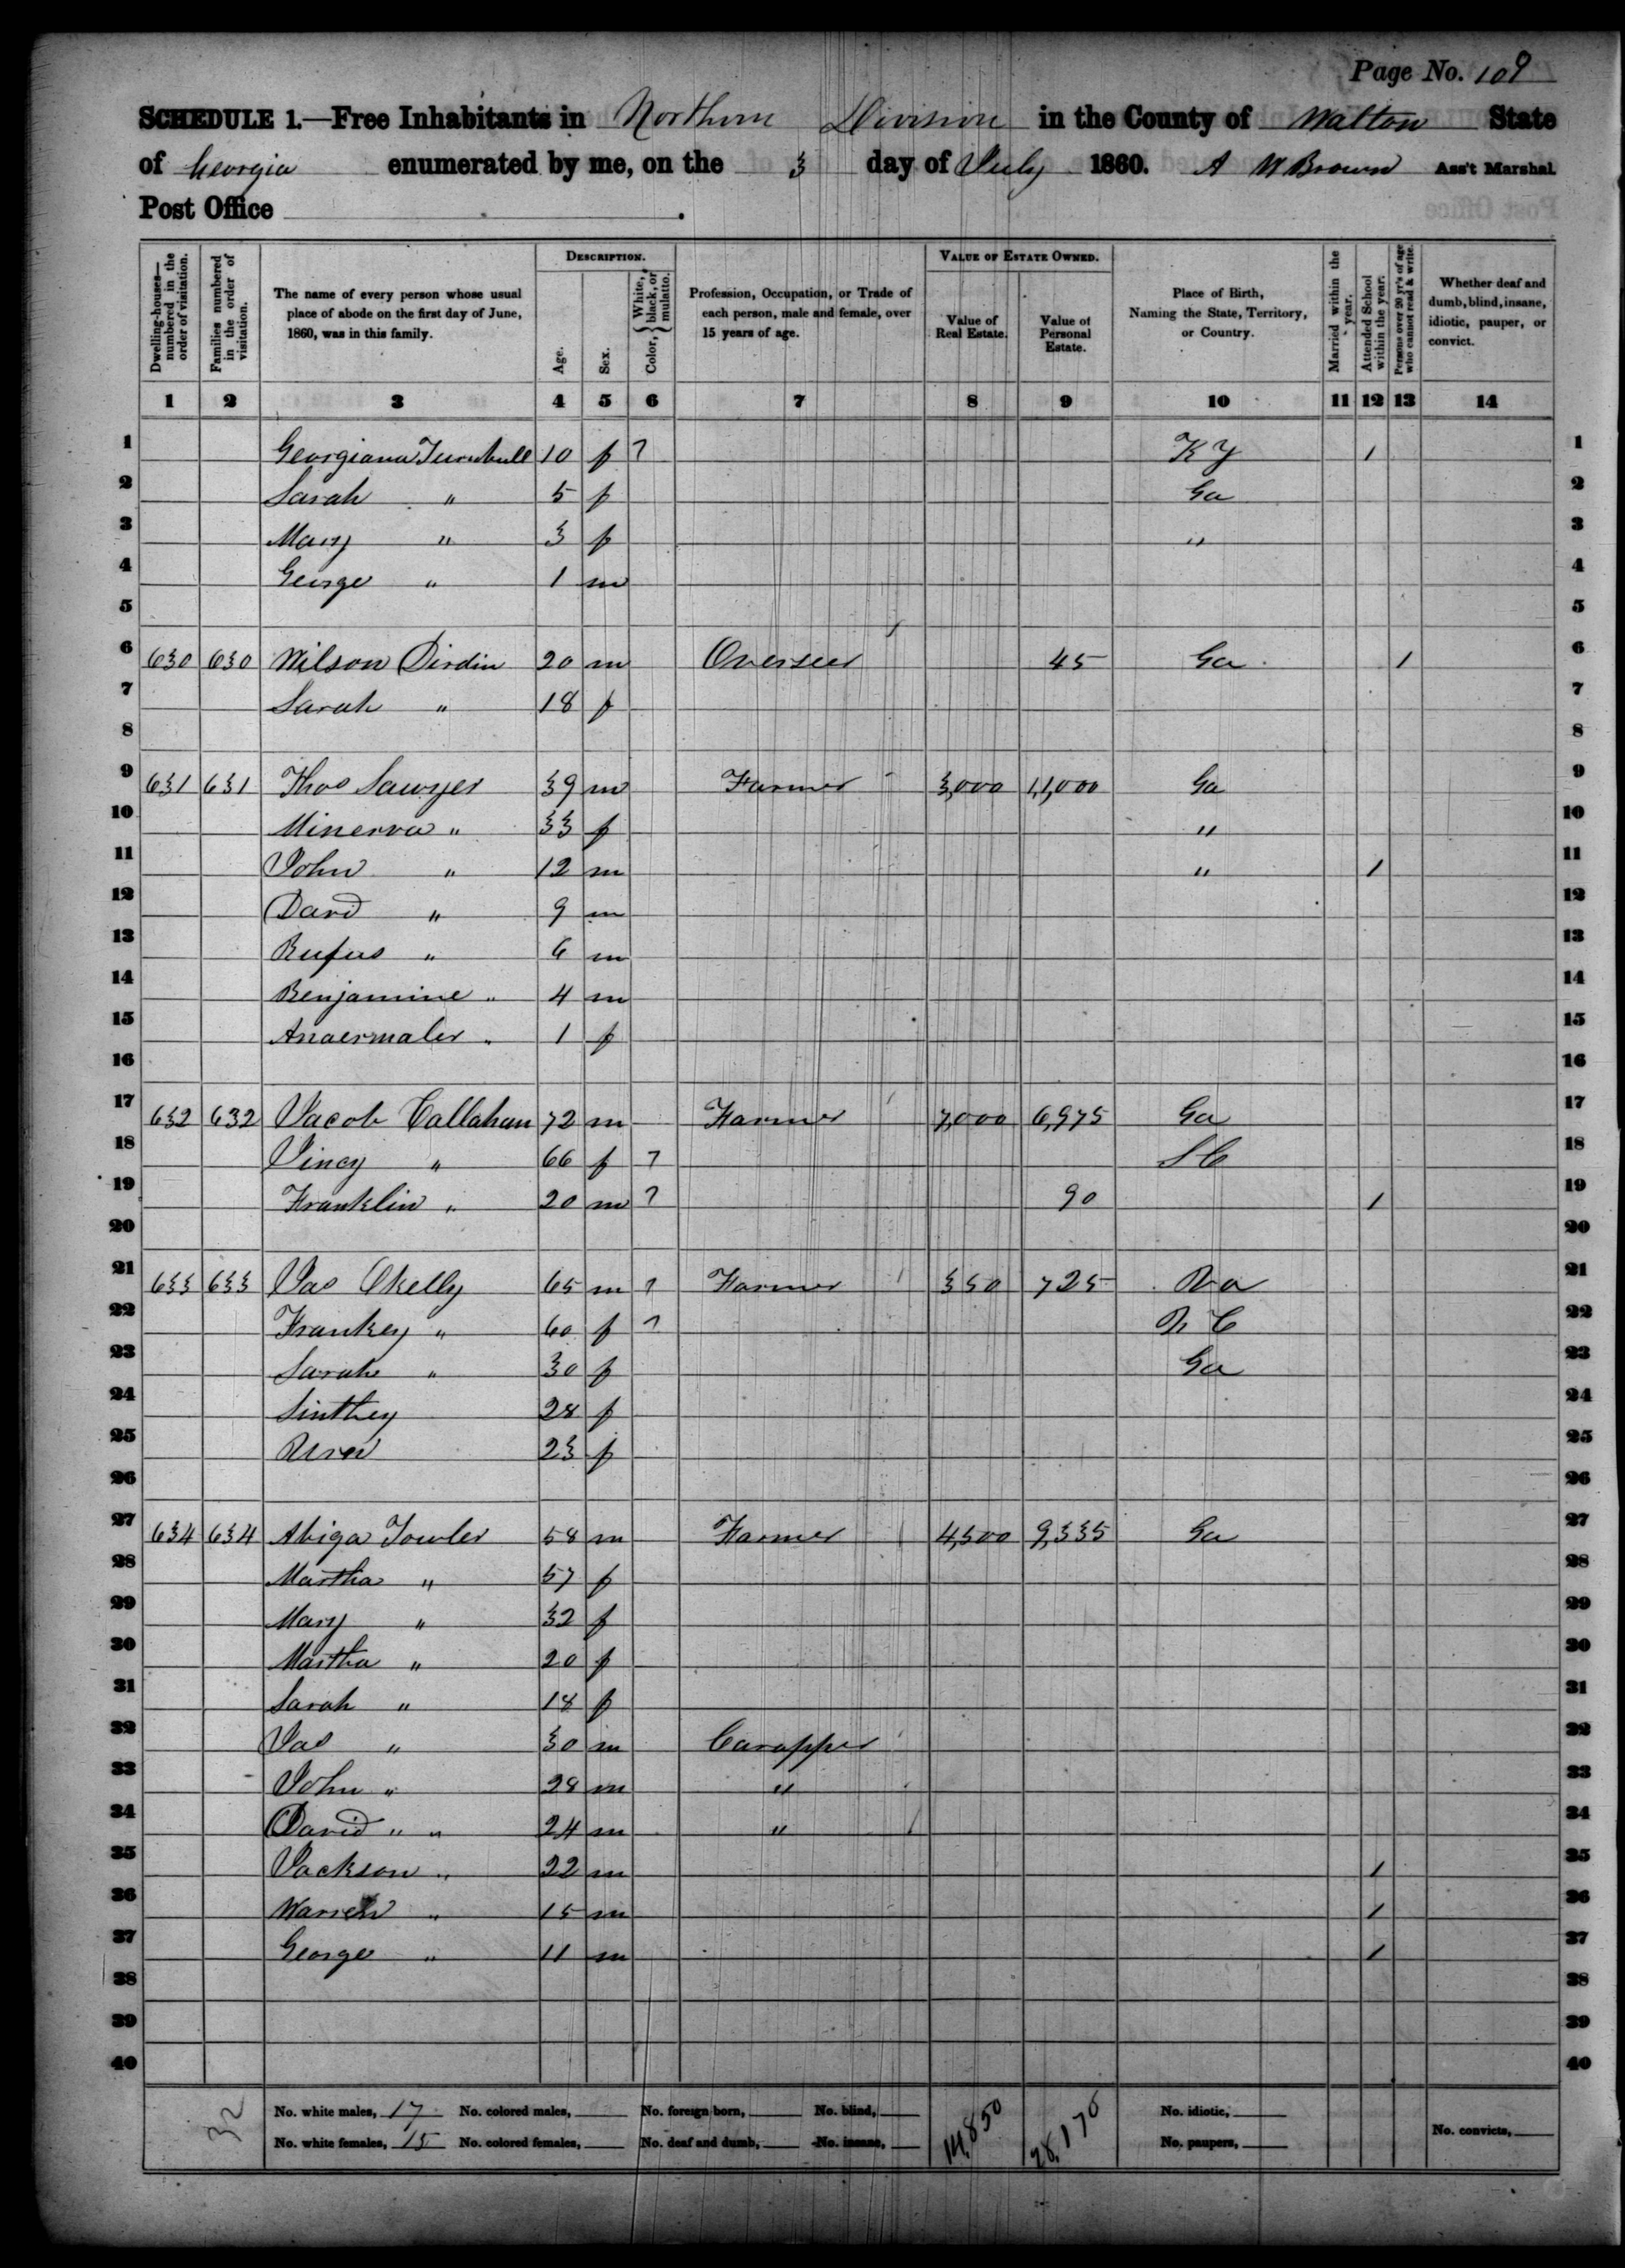 Page No. 109
SCHEDULE 1.—Free Inhabitants in Northern Division in the County of Walton State
of Georgia enumerated by me, on the 3 day of July 1860. A W Brown Ass't Marshal.
Post Office
Dwelling-houses—numbered in the order of visitation. Families numbered in the order of visitation. The name of every person whose usual place of abode on the first day of June, 1860, was in this family. DESCRIPTION. Age. Sex. Color, { White, black, or mulatto. Profession, Occupation, or Trade of each person, male and female, over 15 years of age. VALUE OF ESTATE OWNED. Value of Real Estate. Value of Personal Estate. Place of Birth, Naming the State, Territory, or Country. Married within the year. Attended School within the year. Persons over 20 yr's of age who cannot read & write. Whether deaf and dumb, blind, insane, idiotic, pauper, or convict.
1 2 3 4 5 6 7 8 9 10 11 12 13 14
1 Georgiana Turnbull 10 f 7 KY 1 1
2 Sarah " 5 f Ga 2
3 Mary " 3 f " 3
4 George " 1 m 4
5 5
6 630 630 Wilson Dirdin 20 m Overseer 45 Ga 1 6
7 Sarah " 18 f 7
8 8
9 631 631 Thos Sawyer 39 m Farmer 3,000 11,000 Ga 9
10 Minerva " 33 f " 10
11 John " 12 m " 1 11
12 David " 9 m 12
13 Rufus " 6 m 13
14 Benjamine " 4 m 14
15 " 1 f 15
16 16
17 632 632 Jacob Callahan 72 m Farmer 7,000 6,975 Ga 17
18 Viney " 66 f 7 S C 18
19 Franklin " 20 m 7 90 1 19
20 20
21 633 633 Jas Okelly 65 m 7 Farmer 350 725 Va 21
22 Frankey " 60 f 7 N C 22
23 Sarah " 30 f Ga 23
24 Sinthey 28 f 24
25 23 f 25
26 26
27 634 634 Abiga Towler 58 m Farmer 4,500 9,335 Ga 27
28 Martha " 57 f 28
29 Mary " 32 f 29
30 Martha " 20 f 30
31 Sarah " 18 f 31
32 Jas " 30 m 32
33 John " 28 m " 33
34 David " " 24 m " 34
35 Jackson " 22 m 1 35
36 Warren " 15 m 1 36
37 George " 11 m 1 37
38 38
39 39
40 40
32 No. white males, 17 No. colored males, No. foreign born, No. blind, 14,850 28,170 No. idiotic,
No. white females, 15 No. colored females, No. deaf and dumb, No. insane, No. paupers, No. convicts,